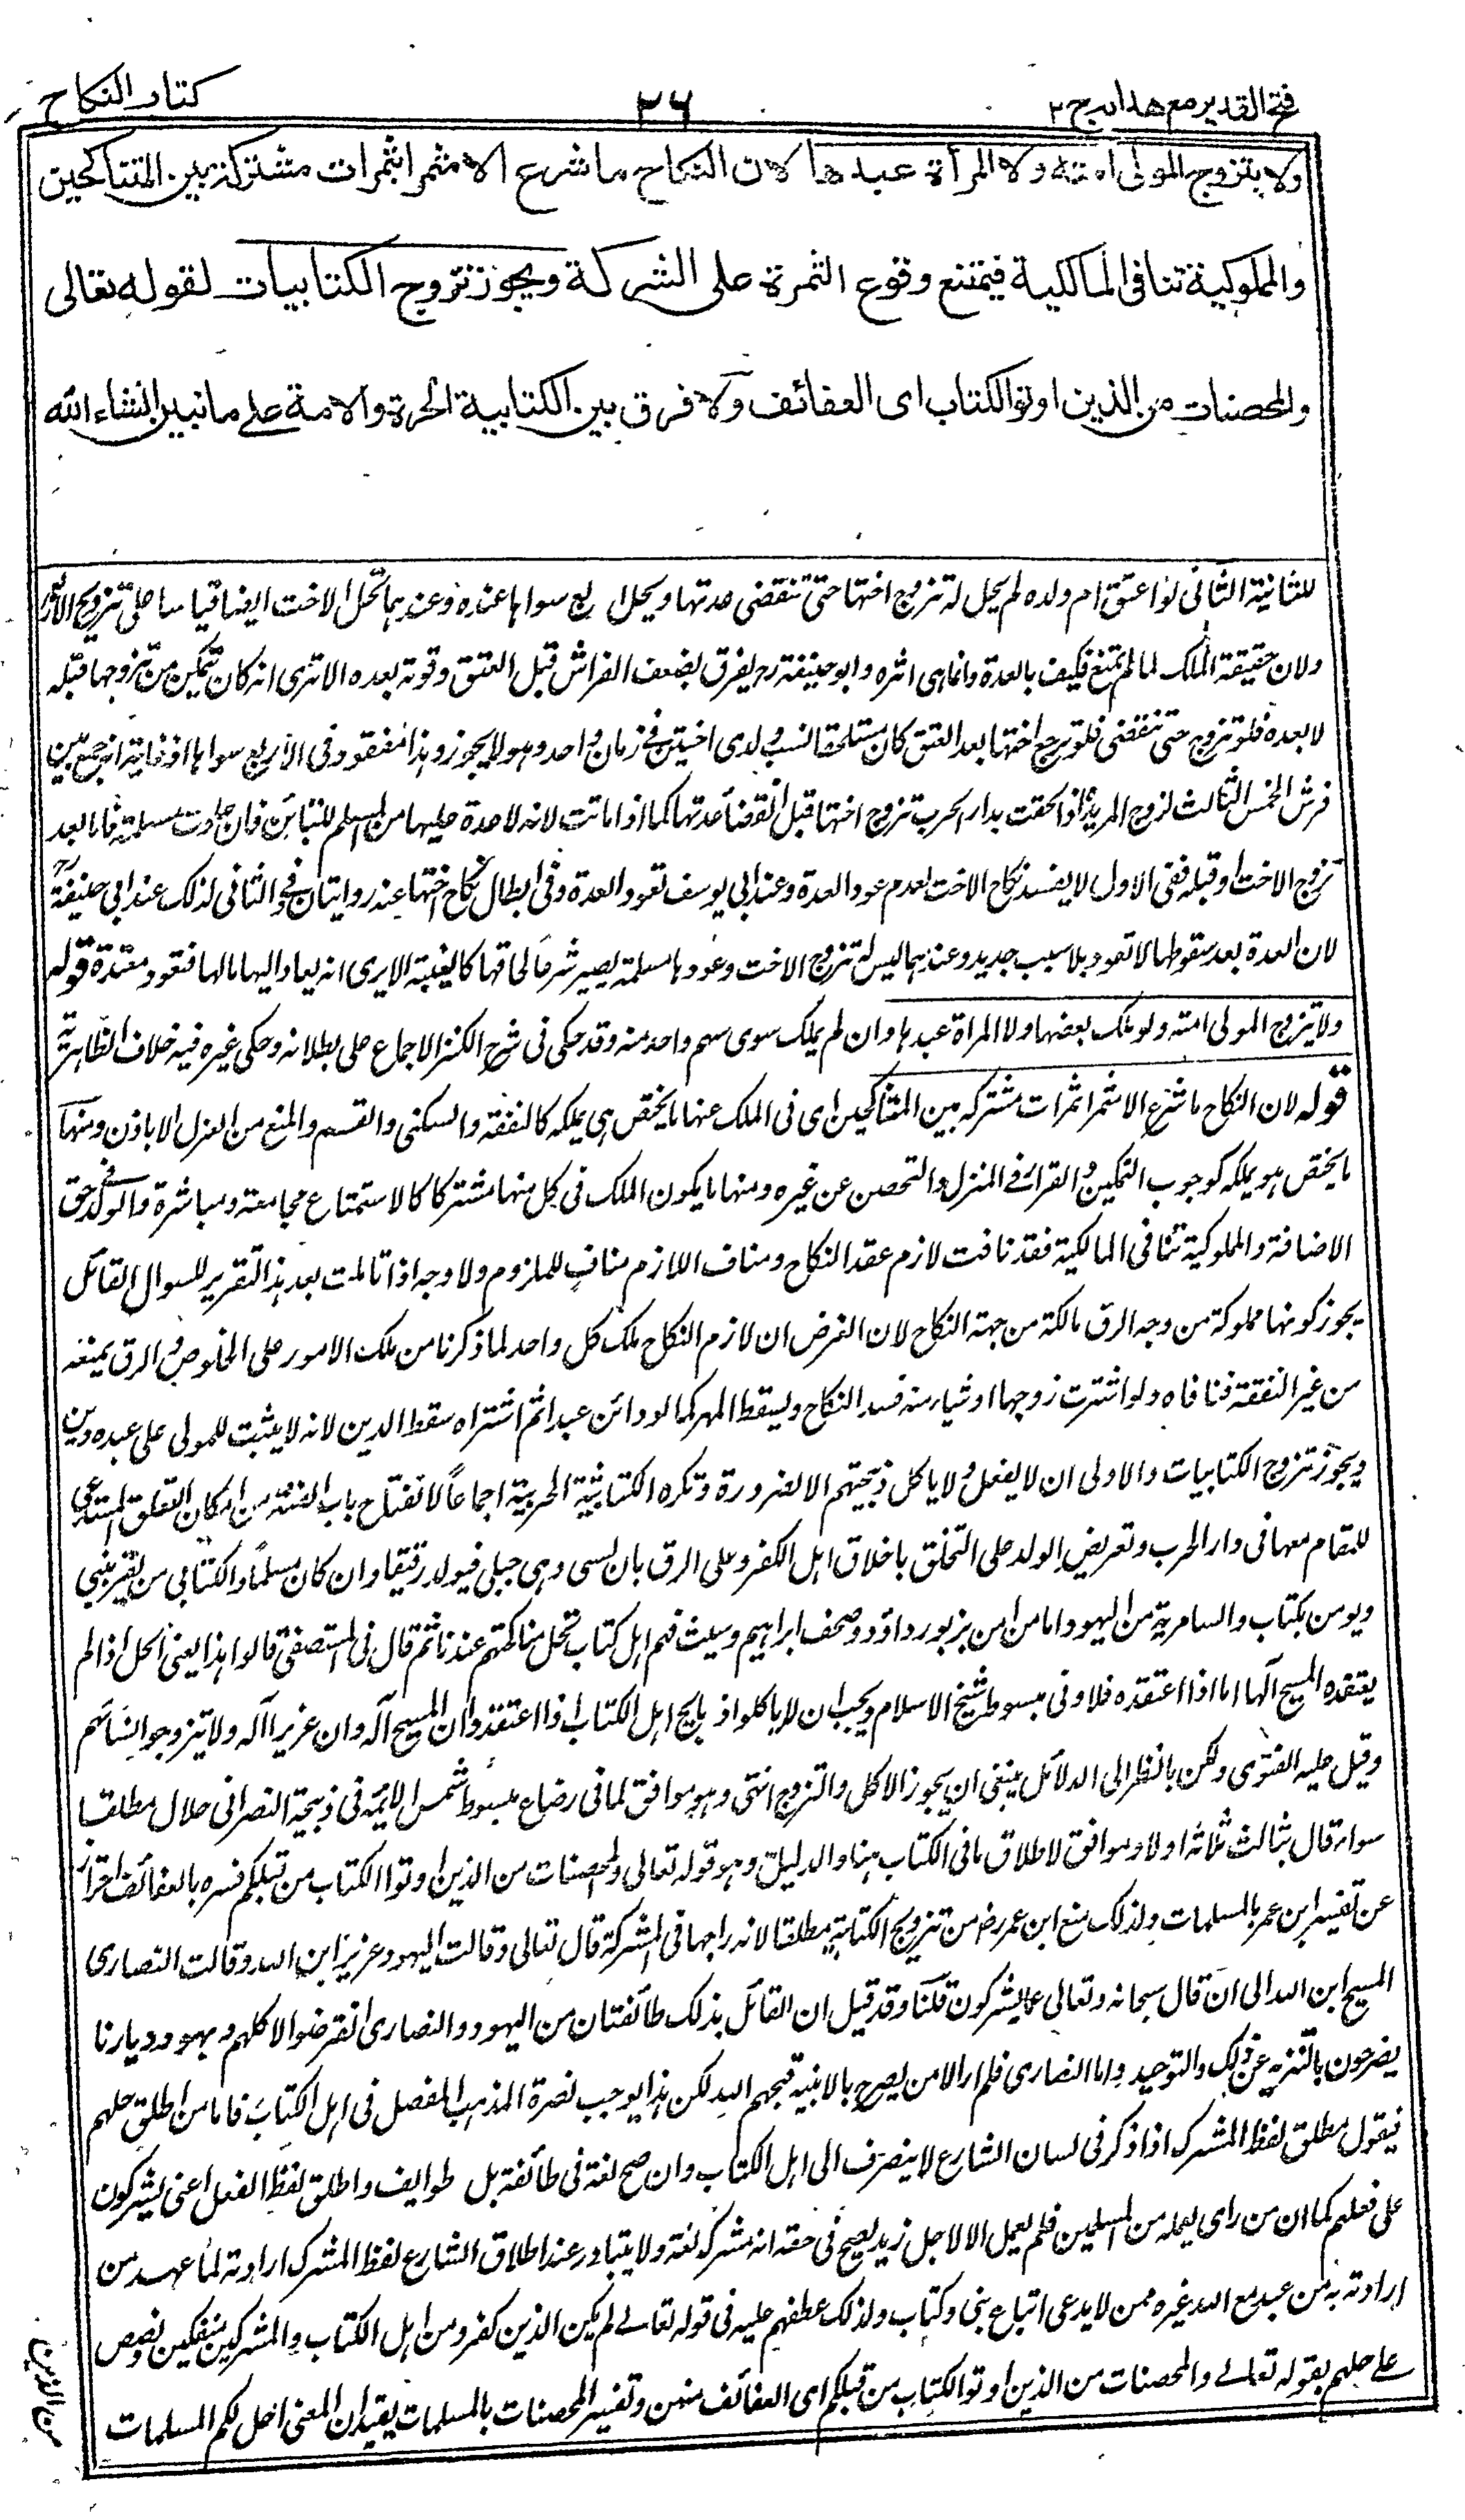 فتح القدير مع هدايه ج ٢
٢٦
كتاب النكاح
ولا يتزوج المولى امته ولا المرأة عبدها لان النكاح ما شرع الا مثمرا بثمرات مشتركة بين المتناكحين
والمملوكية تنافى المالكية فيمتنع وقوع الثمرة على الشركة ويجوز تزوج الكتابيات لقوله تعالى
والمحصنات من الذين اوتوا الكتاب اى العفائف ولا فرق بين الكتابية الحرة والامة على ما نبين انشاء الله
للثانية الثانى لو اعتق ام ولده لم يحل له تزوج اختها حتى تنقضى عدتها ويحل اربع سواها عنده وعندهما تحل الاخت ايضا قياسا على تزويج الاربع
ولان حقيقة الملك لما لم تمنع فكيف بالعدة وانما هى اثره وابو حنيفة رح يفرق بضعف الفراش قبل العتق وقوته بعده الا ترى انه كان يتمكن من تزوجها قبله
لا بعده فلو تزوج حتى تنقضى فلو تزوج اختها بعد العتق كان مستلحقا النسب ولدى اختين فى زمان واحد وهو لا يجوز وهذا مفقود فى الاربع سواها اذ غايته انه جمع بين
فرش الخمس الثالث لزوج المرتدة اذا لحقت بدار الحرب تزوج اختها قبل انقضاء عدتها كما اذا ماتت لانه لا عدة عليها من المسلم للتباين فان عادت مسلمة فاما بعد
تزوج الاخت او قبله ففى الاول لا يفسد نكاح الاخت لعدم عود العدة وعند ابى يوسف تعود العدة وفى ابطال نكاح اختها عنه روايتان وفى الثانى لذلك عند ابى حنيفة رح
لان العدة بعد سقوطها لا تعود بلا سبب جديد وعندهما ليس له تزوج الاخت وعودها مسلمة يصير شرعا لحاقها كالغيبة الا يرى انه يعاد اليها مالها فتعود معتدة قوله
ولا يتزوج المولى امته ولو ملك بعضها ولا المراة عبدها وان لم يملك سوى سهم واحد منه وقد حكى فى شرح الكنز الاجماع على بطلانه وحكى غيره فيه خلاف الظاهرية
قوله لان النكاح ما شرع الا مثمرا ثمرات مشتركة بين المتناكحين اى فى الملك عنها ما يختص هى بملكه كالنفقة والسكنى والقسم والمنع من العزل الا باذن ومنها
ما يختص هو بملكه كوجوب التمكين والقرار فى المنزل والتحصن عن غيره ومنها ما يكون الملك فى كل منها مشتركا كالاستمتاع مجامعة ومباشرة والولد فى حق
الاضافة والمملوكية تنافى المالكية فقد نافت لازم عقد النكاح ومناف اللازم مناف للملزوم ولا وجه اذا تاملت بعد هذا التقرير للسوال القائل
يجوز كونها مملوكة من وجه الرق مالكة من جهة النكاح لان الفرض ان لازم النكاح ملك كل واحد لما ذكرنا من ملك الامور على الخلوص والرق يمنعه
من غير النفقة فنافاه ولو اشترت زوجها او شياء منه فسد النكاح ويسقط المهر كما لو دائن عبدا ثم اشتراه سقط الدين لانه لا يثبت للمولى على عبده دين
ويجوز تزوج الكتابيات والاولى ان لا يفعل ولا ياكل ذبيحتهم الا لضرورة وتكره الكتابية الحربية اجماعا لانفتاح باب الفتنة من امكان التعلق المستدعى
للمقام معها فى دار الحرب وتعريض الولد على التخلق باخلاق اهل الكفر وعلى الرق بان تسبى وهى حبلى فيولد رقيقا وان كان مسلما والكتابى من يقر بنبى
ويومن بكتاب والسامرية من اليهود اما من امن بزبور داؤد وصحف ابراهيم وشيث فهم اهل كتاب تحل مناكحتهم عندنا ثم قال فى المستصفى قالوا هذا يعنى الحل اذا لم
يعتقده المسيح الها اما اذا اعتقده فلا وفى مبسوط شيخ الاسلام ويجب ان لا ياكلوا ذبايح اهل الكتاب اذا اعتقدوا ان المسيح اله وان عزيرا اله ولا يتزوجوا نسائهم
وقيل عليه الفتوى ولكن بالنظر الى الدلائل ينبغى ان يجوز الاكل والتزوج انتهى وهو موافق لما فى رضاع مبسوط شمس الائمة فى ذبيحة النصرانى حلال مطلقا
سواء قال بثالث ثلاثه او لا وموافق لاطلاق ما فى الكتاب هنا والدليل وهو قوله تعالى والمحصنات من الذين اوتوا الكتاب من قبلكم فسره بالعفائف احترازا
عن تفسير ابن عمر بالمسلمات ولذلك منع ابن عمر رض من تزويج الكتابية مطلقا لاندراجها فى المشركة قال تعالى وقالت اليهود عزير ابن الله وقالت النصارى
المسيح ابن الله الى ان قال سبحانه وتعالى عما يشركون قلنا وقد قيل ان القائل بذلك طائفتان من اليهود والنصارى انقرضوا لا كلهم ويهود ديارنا
يصرحون بالتنزيه عن ذلك والتوحيد واما النصارى فلم ار الا من يصرح بالابنية قبحهم الله لكن هذا يوجب نصرة المذهب المفصل فى اهل الكتاب فاما من اطلق حلهم
فيقول مطلق لفظ المشرك اذا ذكر فى لسان الشارع لا ينصرف الى اهل الكتاب وان صح لغة فى طائفة بل طوايف واطلق لفظ الفعل اعنى يشركون
على فعلهم كما ان من راى بعمله من المسلمين فلم يعمل الا لاجل زيد يصح فى حقه انه مشرك لغة ولا يتبادر عند اطلاق الشارع لفظ المشرك ارادته لما عهد من
ارادته به من عبد مع الله غيره ممن لا يدعى اتباع نبى وكتاب ولذلك عطفهم عليه فى قوله تعالى لم يكن الذين كفروا من اهل الكتاب والمشركين منفكين ونص
على حلهم بقوله تعالے والمحصنات من الذين اوتوا الكتاب من قبلكم اى العفائف منهن وتفسير المحصنات بالمسلمات يفيد ان المعنى احل لكم المسلمات
من الذين